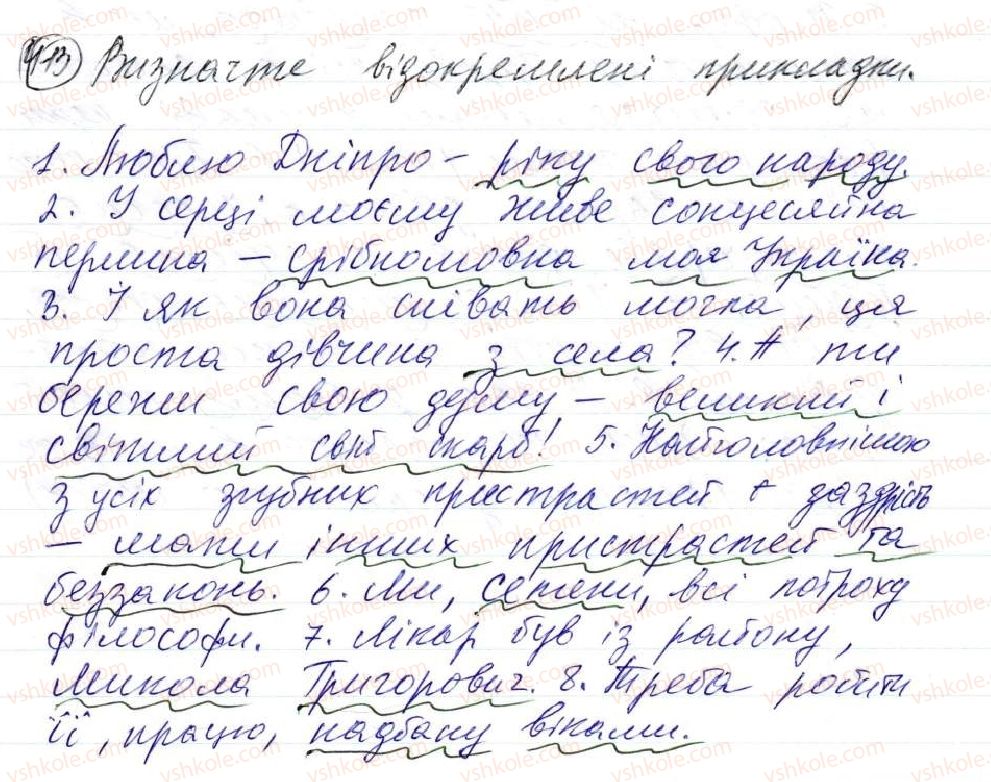 413 Визначте відокремлені прикладки.
1. Люблю Дніпро – ріку свого народу.
2. У серці моєму живе сонцесяйна
перлина – срібномовна моя Україна.
3. І як вона співать могла, ця
проста дівчина з села? 4. А ти
бережи свою душу – великий і
світлий свій скарб! 5. Найголовнішою
з усіх згубних пристрастей є заздрість
– мати інших пристрастей та
беззаконь. 6. Ми, селени, всі потроху
філософи. 7. Лікар був із району,
Микола Григорович. 8. Треба робити
її, працю, надбану віками.